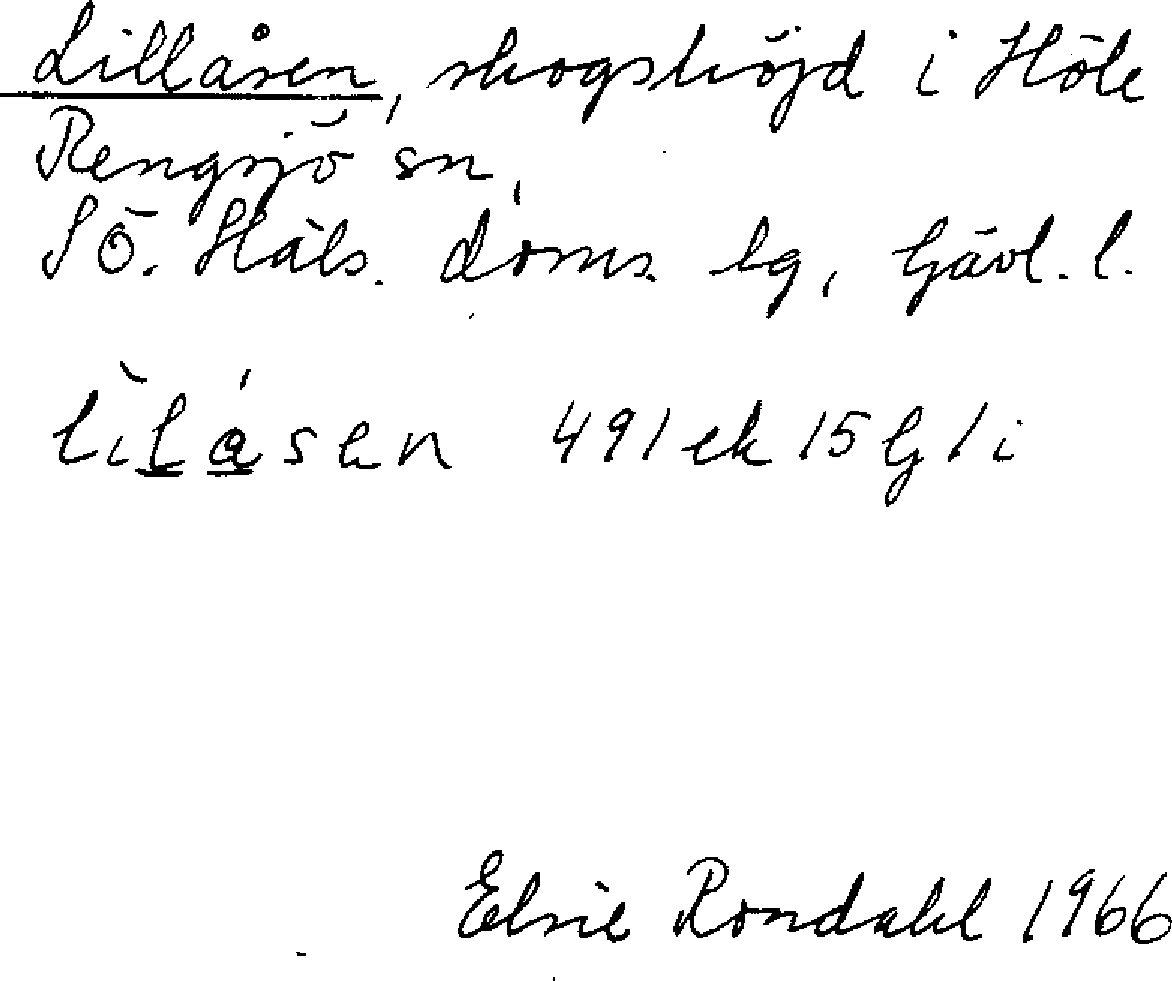 Lillåsen, skogshöjd i Höle
Rengsjö sn,
SÖ. Häls. doms. lg, Gävl. l.
lìlåsen 491 ek 15 G 1 i
Elsie Rondahl 1966